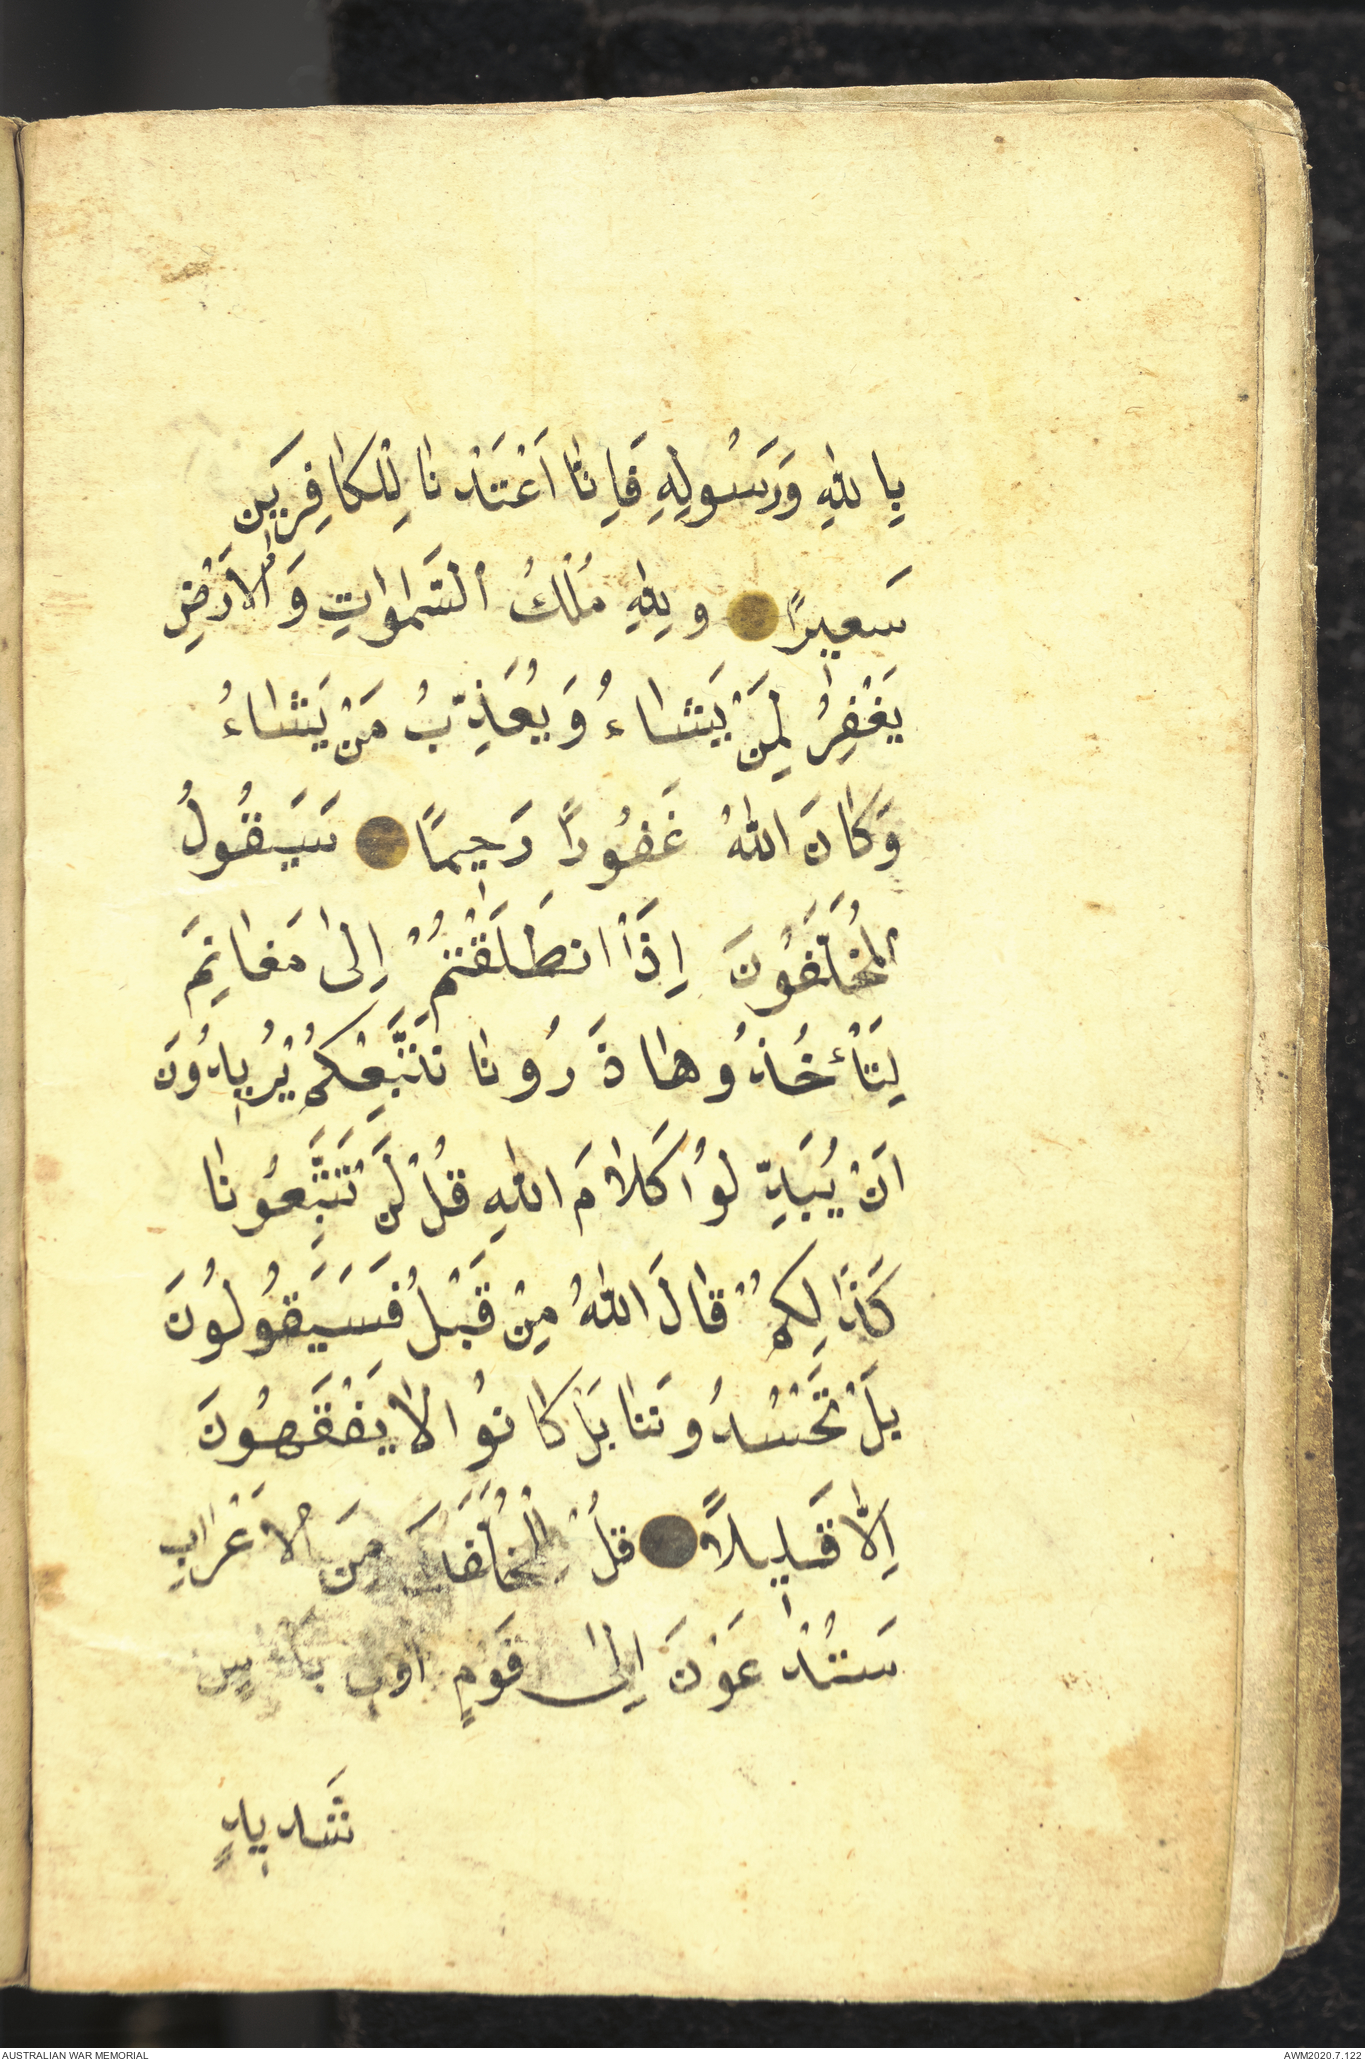 بِاللّٰهِ وَرَسُولِهِ فَاِنَّا اَعْتَدْنَا لِلْكَافِرِينَ
سَعيرًا وَلِلّٰهِ مُلْكُ السَّمٰوَاتِ وَالْاَرْضِ
يَغْفِرُ لِمَنْ يَشَاءُ وَيُعَذِّبُ مَنْ يَشَاءُ
وَكَانَ اللّٰهُ غَفُورًا رَحِيمًا سَيَقُولُ
الْمُخَلَّفُونَ اِذَا انطَلَقْتُمْ اِلٰى مَغَانِمَ
لِتَأْخُذُوهَا ذَرُونَا نَتَّبِعْكُمْ يُرِيدُونَ
اَنْ يُبَدِّلُوا كَلَامَ اللّٰهِ قُلْ لَنْ تَتَّبِعُونَا
كَذَالِكُمْ قَالَ اللّٰهُ مِنْ قَبْلُ فَسَيَقُولُونَ
بَلْ تَحْسُدُونَنَا بَلْ كَانُوا لَا يَفْقَهُونَ
اِلَّا قَلِيلًا قُلْ لِلْمُخَلَّفِينَ مِنَ الْاَعْرَابِ
سَتُدْعَوْنَ اِلٰى قَوْمٍ اُولِى بَأْسٍ
شَدِيدٍ
AUSTRALIAN WAR MEMORIAL
AWM2020.7.122